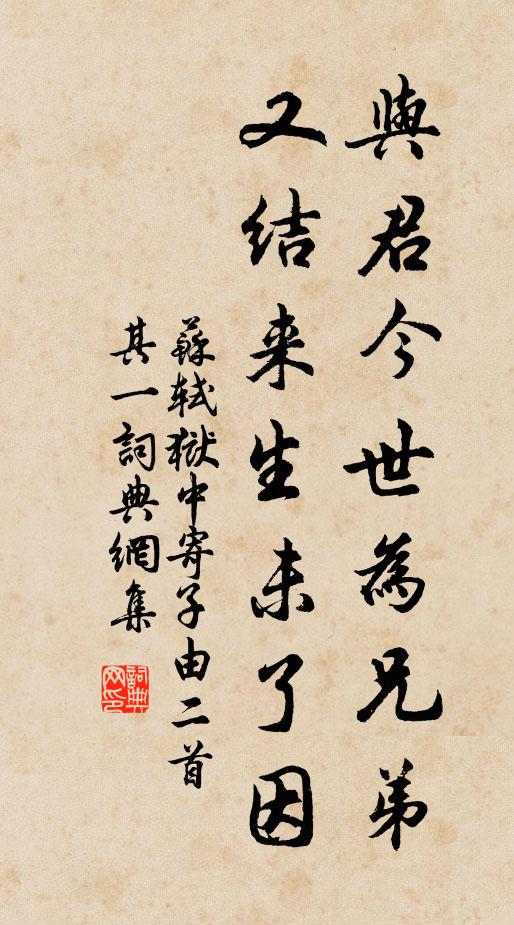 與君今世為兄弟
又结来生未了因
蘇軾獄中寄子由二首
其一詞典網集
詞典網印